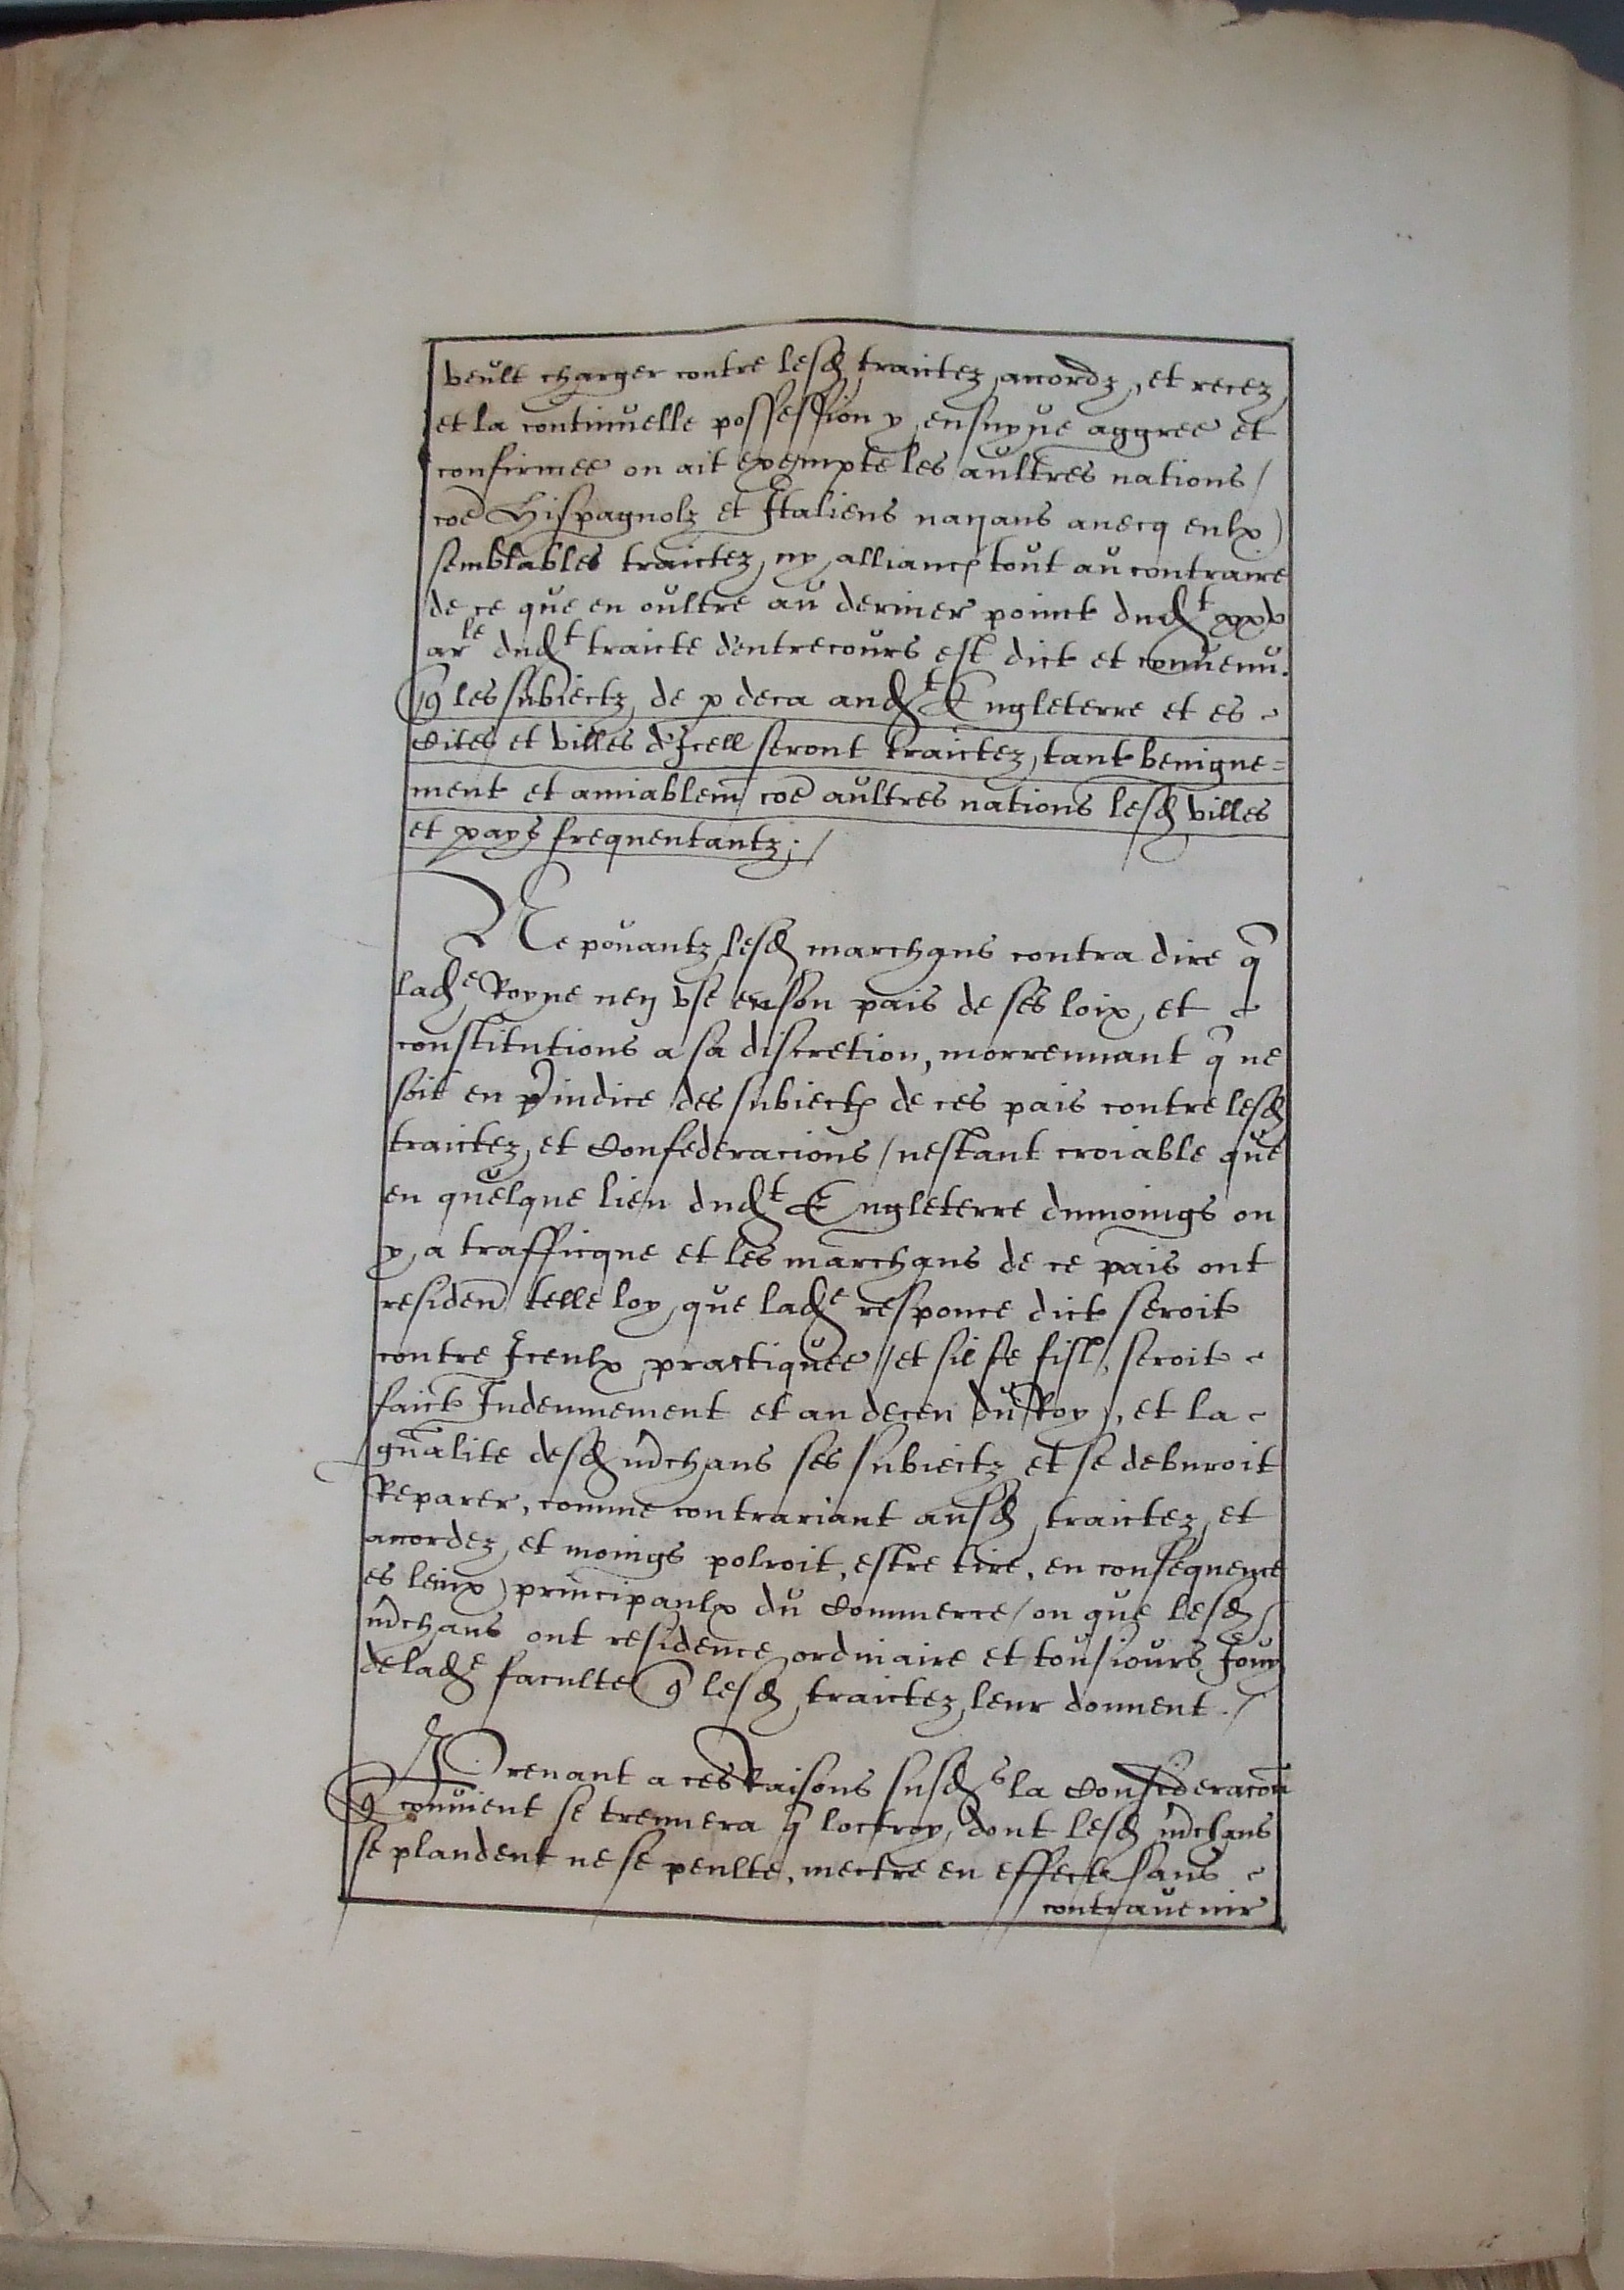 veult charger contre lesd traictez, acordz, et recez,
et la continuelle possession y ensuyue aggree et
confirmee on ait exempte les aultres nations /
coe Hispagnolz et Italiens nayans auecq eulx)
semblables traictez, ny alliance tout au contraire
de ce que en oultre au dernier poinct dudt xxv
arle dudt traicte dentrecours est dict et conuenu.
q les subiectz de p deca audt Engleterre et es
Cites et villes dIcell seront traictez, tant benigne=
ment et amiablem coe aultres nations lesd villes
et pays frequentantz; /
Ne pouantz lesd marchans contra dire q
lade Royne ney vse enson pais de ses loix, et
constitutions a sa discretion, moiennant q ne
soit en p iudice des subiectz de ces pais contre lesd
traictez, et Confederacions / nestant croiable que
en quelque lieu dudt Engleterre dumoings ou
y, a trafficque et les marchans de ce pais ont
residen telle loy, que lade responce dict seroit
contre Iceulx practiquee // et sil se fist, seroit
faict Indeuuement et au deceu du Roy, et la
gnalite desd mchans ses subiectz et se deburoit
Reparer, comme contrariant ausd traictez, et
acordez, et moings polroit, estre tire, en consequence
es leiux) principaulx du Commerce / ou que lesd
mchans ont residence ordinaire et tousiours Jouy
delade faculte q lesd traictez leur donnent. /
Prenant a ces Raisons susds la Consideracon
q conuient se trennera q loctroy, dont lesd mchans
se plandent ne se peulte, mectre en effect sans
contrauenir